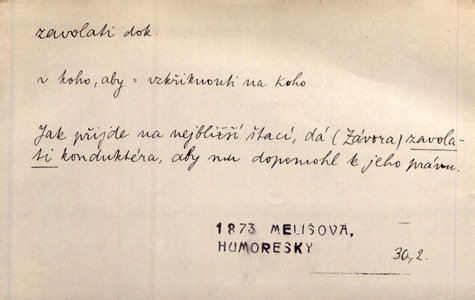 zavolati dok.
~ koho, aby = vzkřiknouti na koho
Jak přijde na nejbližší štací, dá (Závora) zavola-
ti konduktéra, aby mu dopomohl k jeho právu.
1873 MELIŠOVA,
HUMORESKY
30,2.